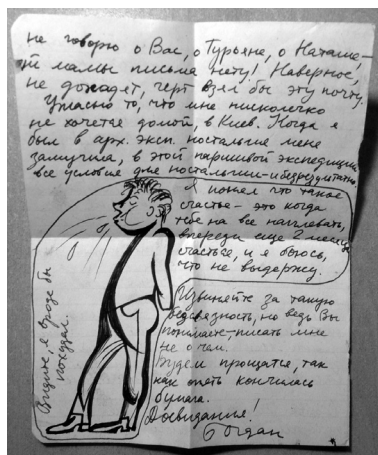 не говорю о Вас, о Турьяне, о Наташе-
от мамы письма нету! Наверное,
не доходят, черт взял бы эту почту.
Ужасно то, что мне нисколечко
не хочется домой, в Киев. Когда я
был в арх. эксп. ностальгия меня
замучила, в этой паршивой экспедиции
все условия для ностальгии - и безрезультатно.
Я понял что такое
счастье - это когда
тебе на все наплевать,
впереди еще 2 месяца
счастья, и я боюсь,
что не выдержу.
Видите, я вроде бы
похудел.
Извиняйте за такую
бессвязность, но ведь Вы
понимаете, писать мне
не о чем.
Будем прощаться, так
как опять кончилась
бумага.
Досвиданья!
Богдан